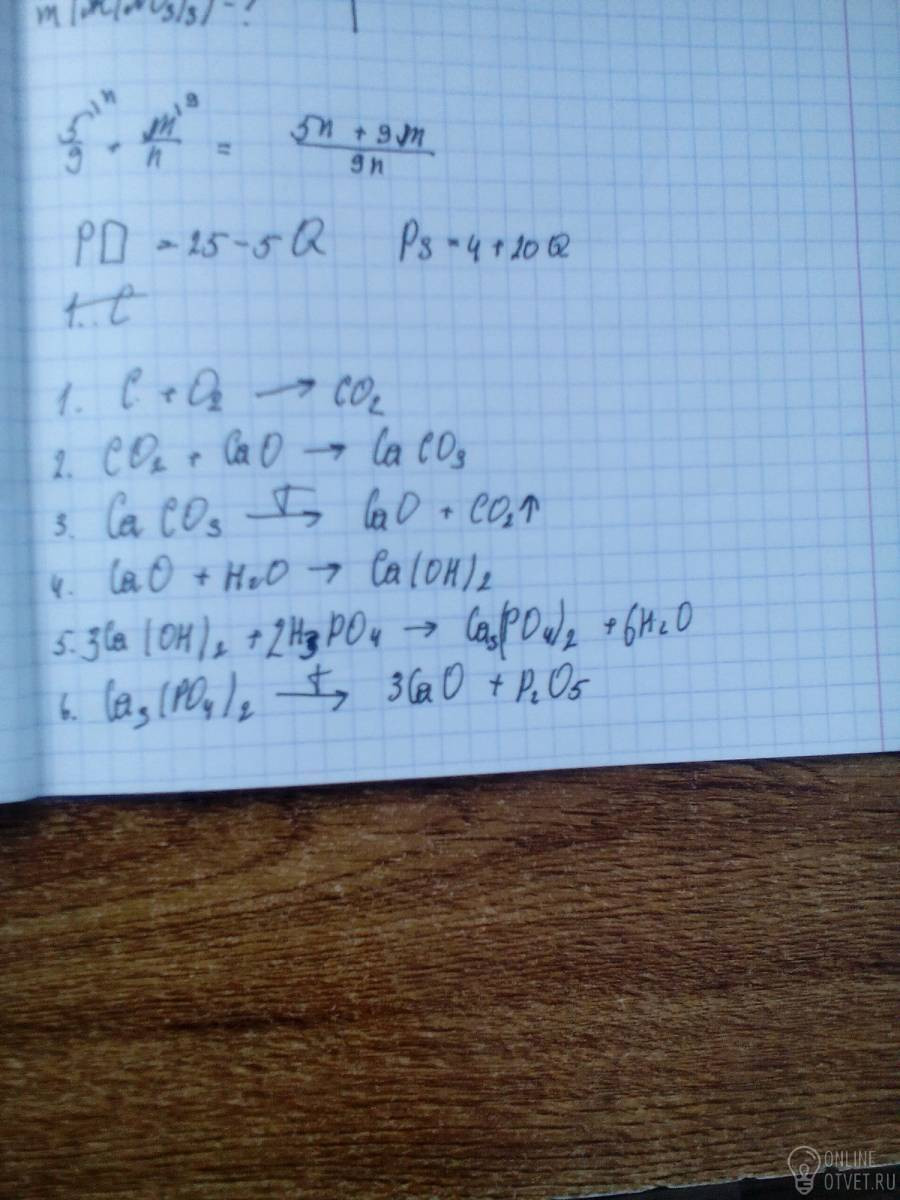 5/9 + m/n = 5n + 9m / 9n
PD = 25 - 5Q P3 = 4 + 20Q
1. C
1. C + O₂ → CO₂
2. CO₂ + CaO → CaCO₃
3. CaCO₃ T→ CaO + CO₂↑
4. CaO + H₂O → Ca(OH)₂
5. 3Ca(OH)₂ + 2H₃PO₄ → Ca₃(PO₄)₂ + 6H₂O
6. Ca₃(PO₄)₂ t→ 3CaO + P₂O₅
ONLINE
OTVET.RU